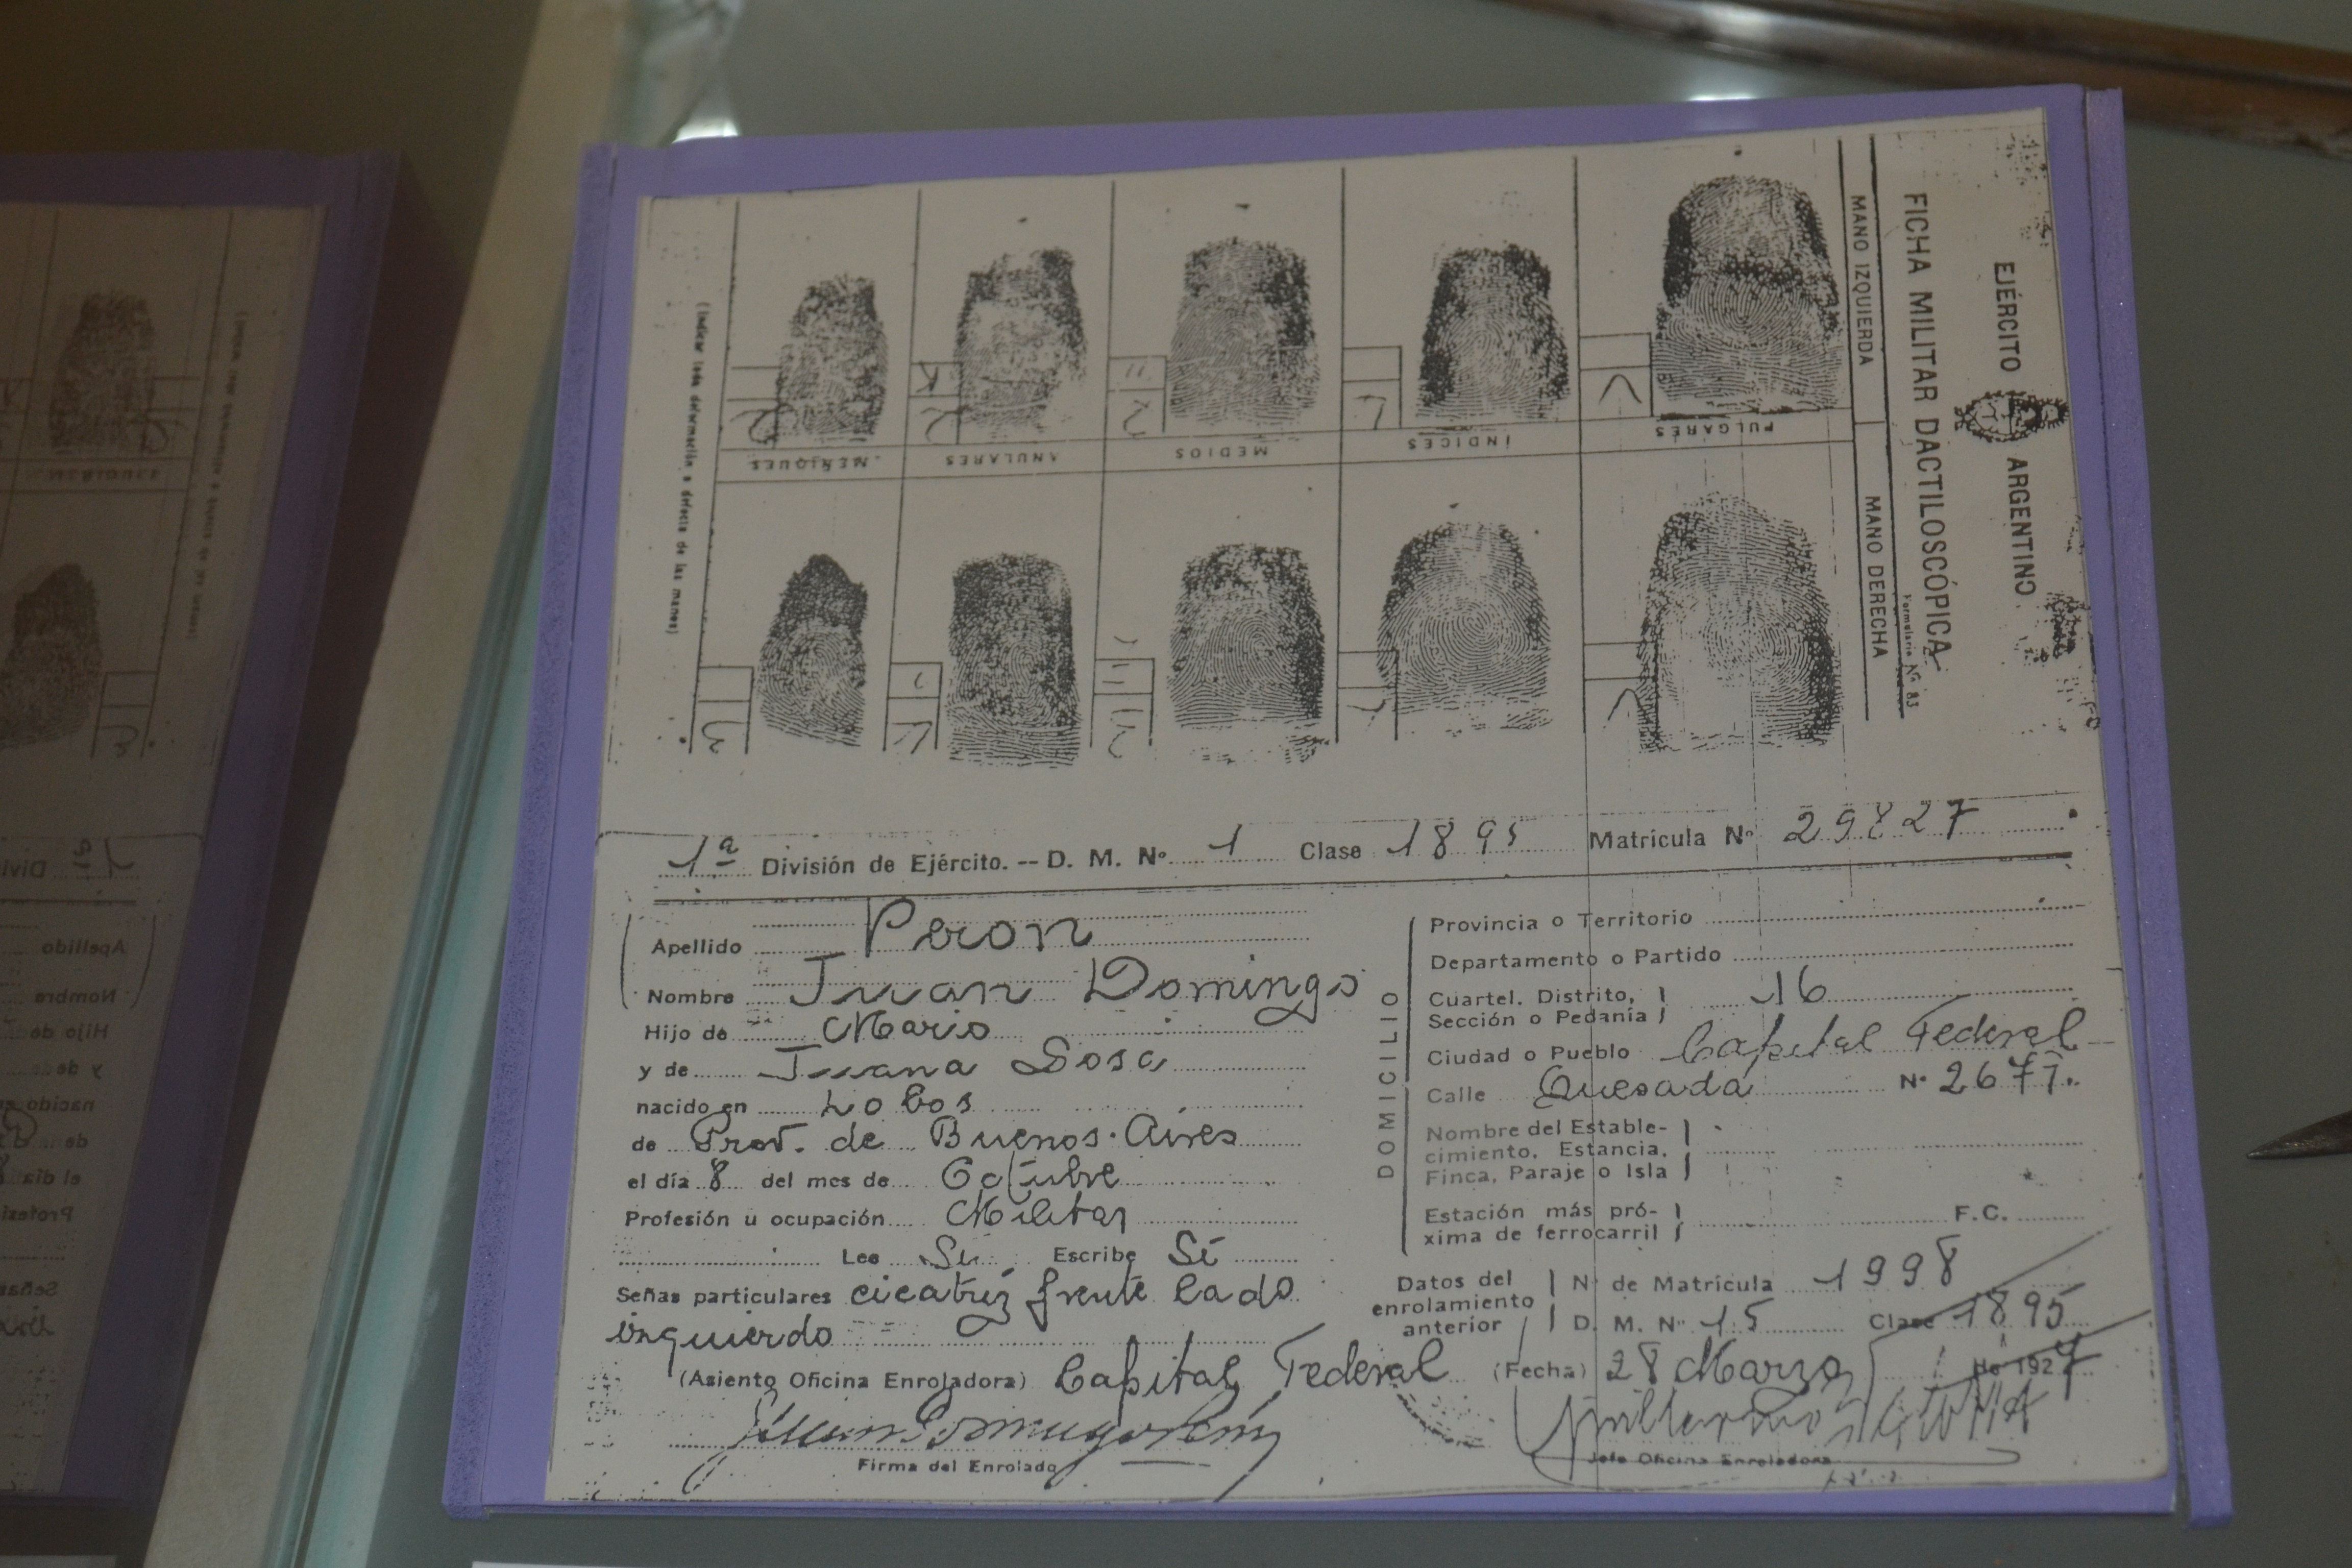 EJÉRCITO ARGENTINO
FICHA MILITAR DACTILOSCÓPICA
Formulario Nº 83
MANO IZQUIERDA MANO DERECHA
PULGARES
ÍNDICES
MEDIOS
ANULARES
MEÑIQUES
(Indicar toda deformación o defecto de las manos)
1ª División de Ejército. -- D. M. Nº 1 Clase 1895 Matrícula Nº
Apellido Peron
Nombre Juan Domingo
Hijo de Mario
y de Juana Sosa
nacido en Lobos
de Prov. de Buenos Aires
el día 8 del mes de Octubre
Profesión u ocupación Militar
Lee Si Escribe Sí
Señas particulares cicatriz frente lado
izquierdo
DOMICILIO
Provincia o Territorio
Departamento o Partido
Cuartel, Distrito,
Sección o Pedanía 16
Ciudad o Pueblo Capital Federal
Calle Quesada Nº 2677
Nombre del Estable-
cimiento, Estancia,
Finca, Paraje o Isla
Estación más pró-
xima de ferrocarril F.C.
Datos del
enrolamiento
anterior
Nº de Matrícula 1998
D. M. Nº 15 Clase 1895
(Asiento Oficina Enroladora) Capital Federal (Fecha) 28 Marzo de 1927
Juan Domingo Perón
Firma del Enrolado
Jefe Oficina Enroladora